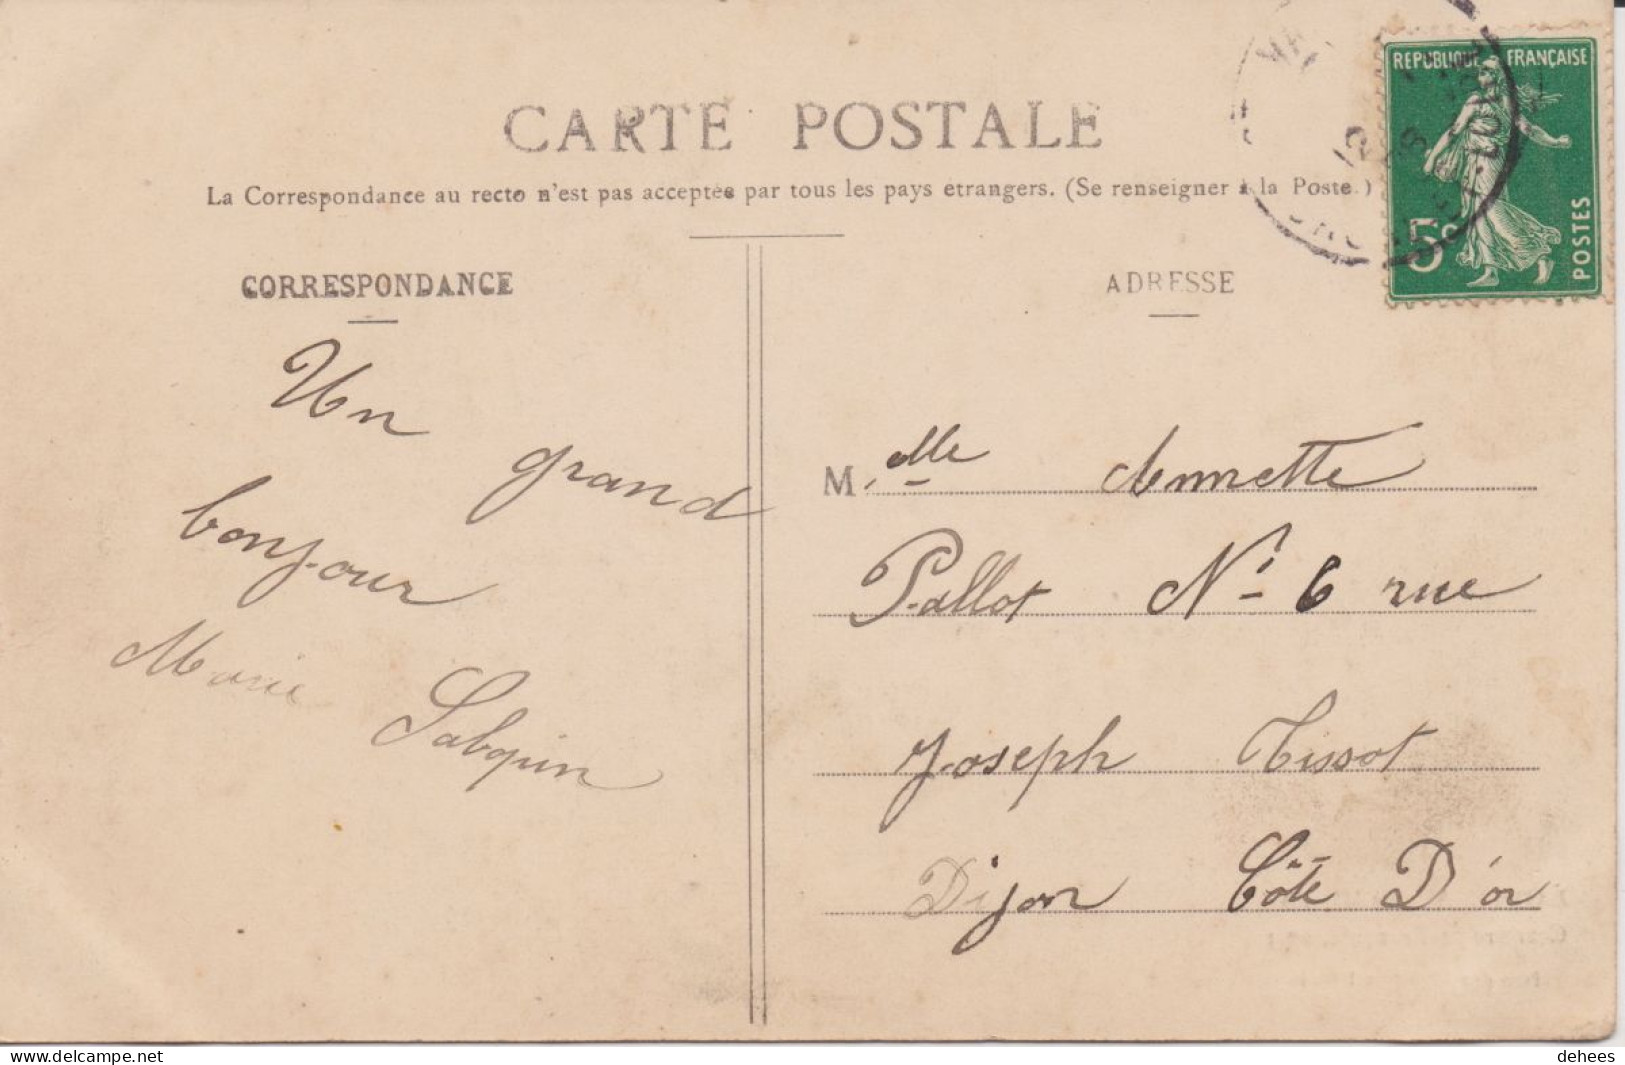 CARTE POSTALE
La Correspondance au recto n'est pas acceptée par tous les pays étrangers. (Se renseigner à la Poste.)
REPUBLIQUE FRANÇAISE
5c
POSTES
CORRESPONDANCE
Un grand
bonjour
Marie
ADRESSE
M.elle Annette
Pallot N° 6 rue
Joseph Tissot
Dijon Côte D'or
delcampe.net
dehees